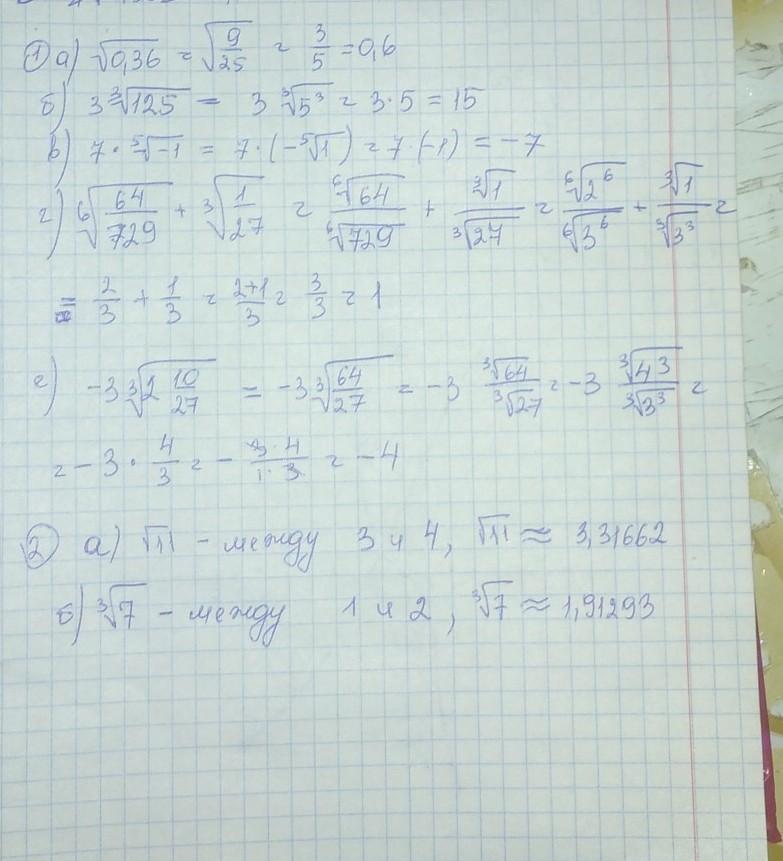 ① а) √0,36 = √(9/25) = 3/5 = 0,6
б) 3 ∛125 = 3 ∛5³ = 3·5 = 15
в) 7·⁵√-1 = 7·(-⁵√1) = 7·(-1) = -7
г) ⁶√(64/729) + ³√(1/27) = ⁶√64/⁶√729 + ³√1/³√27 = ⁶√2⁶/⁶√3⁶ + ³√1/³√3³ =
= 2/3 + 1/3 = (2+1)/3 = 3/3 = 1
е) -3 ³√(2 10/27) = -3 ³√(64/27) = -3 ³√64/³√27 = -3 ³√4³/³√3³ =
= -3 · 4/3 = - (3·4)/(1·3) = -4
② а) √11 - между 3 и 4, √11 ≈ 3,31662
б) ³√7 - между 1 и 2, ³√7 ≈ 1,91293